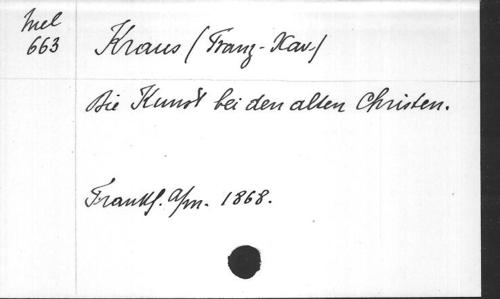 Mel
663
Kraus (Franz-Xav.)
Die Kunst bei den alten Christen.
Frankf. a/m. 1868.